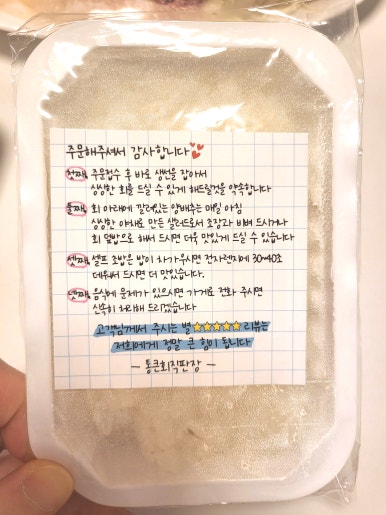 주문해주셔서 감사합니다
첫째, 주문접수 후 바로 생선을 잡아서
싱싱한 회를 드실 수 있게 해드릴것을 약속합니다
둘째, 회 아래에 깔려있는 양배추는 매일 아침
싱싱한 야채로 만든 샐러드로서 초장과 비벼 드시거나
회 덮밥으로 해서 드시면 더욱 맛있게 드실 수 있습니다
셋째, 셀프 초밥은 밥이 차가우시면 전자렌지에 30~40초
데워서 드시면 더 맛있습니다.
넷째, 음식에 문제가 있으시면 가게로 전화 주시면
신속히 처리해 드리겠습니다
고객님께서 주시는 별⭐⭐⭐⭐⭐ 리뷰는
저희에게 정말 큰 힘이 됩니다
- 통큰회직판장 -